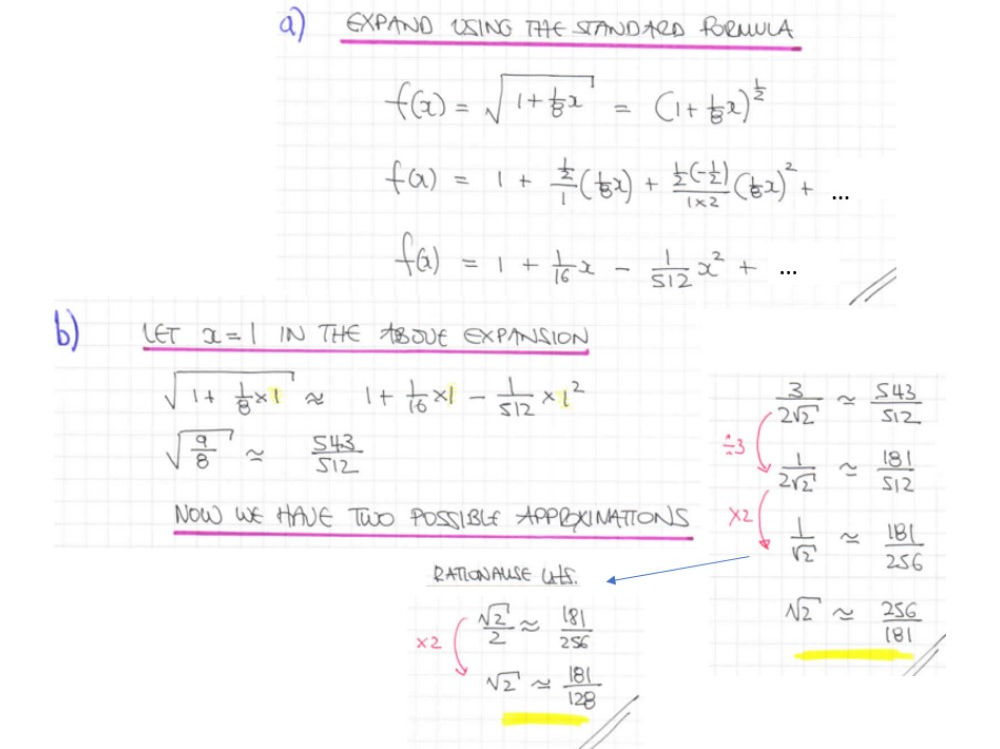 a) EXPAND USING THE STANDARD FORMULA
f(x) = √(1 + 1/8 x) = (1 + 1/8 x)^(1/2)
f(x) = 1 + (1/2)/1 (1/8 x) + (1/2(-1/2))/(1×2) (1/8 x)² + ...
f(x) = 1 + 1/16 x - 1/512 x² + ...
b) LET x=1 IN THE ABOVE EXPANSION
√(1 + 1/8 ×1) ≈ 1 + 1/16 ×1 - 1/512 ×1²
√(9/8) ≈ 543/512
NOW WE HAVE TWO POSSIBLE APPROXIMATIONS
3/(2√2) ≈ 543/512
÷3
1/(2√2) ≈ 181/512
×2
1/√2 ≈ 181/256
√2 ≈ 256/181
RATIONALISE LHS.
√2/2 ≈ 181/256
×2
√2 ≈ 181/128